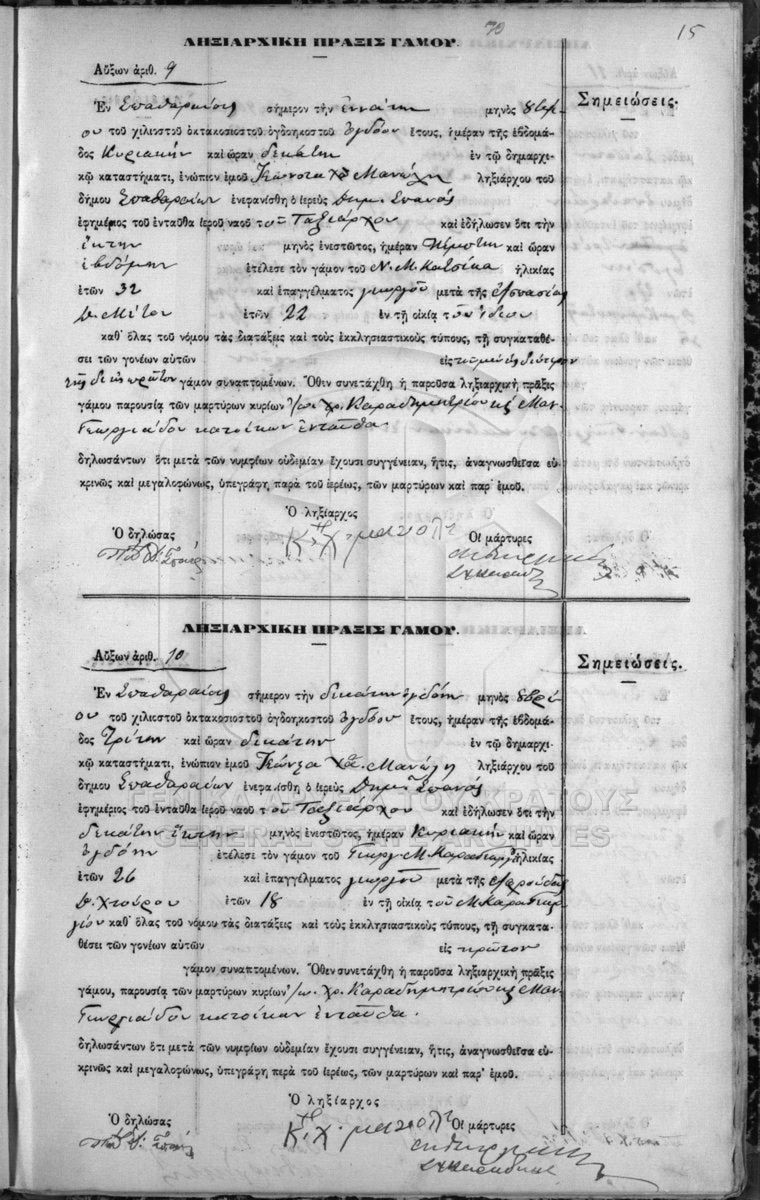 70
15
ΛΗΞΙΑΡΧΙΚΗ ΠΡΑΞΙΣ ΓΑΜΟΥ.
Αὔξων ἀριθ. 9
Σημειώσεις.
Ἐν Σπαθαραίοις σήμερον τὴν ἐννάτην μηνὸς 8βρί-
ου τοῦ χιλιοστοῦ ὀκτακοσιοστοῦ ὀγδοηκοστοῦ ὀγδόου ἔτους, ἡμέραν τῆς ἑβδομά-
δος Κυριακὴν καὶ ὥραν δεκάτην ἐν τῷ δημαρχι-
κῷ καταστήματι, ἐνώπιον ἐμοῦ Χʺ Μανώλη ληξιάρχου τοῦ
δήμου Σπαθαραίων ἐνεφανίσθη ὁ ἱερεὺς Δημ. Σπανός
ἐφημέριος τοῦ ἐνταῦθα ἱεροῦ ναοῦ τοῦ Ταξιάρχου καὶ ἐδήλωσεν ὅτι τὴν
ἕκτην μηνὸς ἐνεστῶτος, ἡμέραν Πέμπτην καὶ ὥραν
ἑβδόμην ἐτέλεσε τὸν γάμον τοῦ Ν. Μ. Κατσίκα ἡλικίας
ἐτῶν 32 καὶ ἐπαγγέλματος γεωργοῦ μετὰ τῆς Ἀσπασίας
ἐτῶν 22 ἐν τῇ οἰκίᾳ τοῦ ἰδίου
καθ᾽ ὅλας τοῦ νόμου τὰς διατάξεις καὶ τοὺς ἐκκλησιαστικοὺς τύπους, τῇ συγκαταθέ-
σει τῶν γονέων αὐτῶν εἰς δεύτερον
τῆς δὲ εἰς πρῶτον γάμον συναπτομένων. Ὅθεν συνετάχθη ἡ παροῦσα ληξιαρχικὴ πρᾶξις
γάμου παρουσίᾳ τῶν μαρτύρων κυρίων Χρ. Καραδημητρίου κς Μαν.
Γεωργιάδου κατοίκων ἐνταῦθα
δηλωσάντων ὅτι μετὰ τῶν νυμφίων οὐδεμίαν ἔχουσι συγγένειαν, ἥτις, ἀναγνωσθεῖσα εὐ-
κρινῶς καὶ μεγαλοφώνως, ὑπεγράφη παρὰ τοῦ ἱερέως, τῶν μαρτύρων καὶ παρ᾽ ἐμοῦ.
Ὁ ληξίαρχος
Ὁ δηλώσας
Οἱ μάρτυρες
ΛΗΞΙΑΡΧΙΚΗ ΠΡΑΞΙΣ ΓΑΜΟΥ.
Αὔξων ἀριθ. 10
Σημειώσεις.
Ἐν Σπαθαραίοις σήμερον τὴν δεκάτην ὀγδόην μηνὸς 8βρί-
ου τοῦ χιλιοστοῦ ὀκτακοσιοστοῦ ὀγδοηκοστοῦ ὀγδόου ἔτους, ἡμέραν τῆς ἑβδομά-
δος Τρίτην καὶ ὥραν δεκάτην ἐν τῷ δημαρχι-
κῷ καταστήματι, ἐνώπιον ἐμοῦ Μανώλη ληξιάρχου τοῦ
δήμου Σπαθαραίων ἐνεφανίσθη ὁ ἱερεὺς Δημ. Σπανός
ἐφημέριος τοῦ ἐνταῦθα ἱεροῦ ναοῦ τοῦ Ταξιάρχου καὶ ἐδήλωσεν ὅτι τὴν
δεκάτην ἕκτην μηνὸς ἐνεστῶτος, ἡμέραν Κυριακὴν καὶ ὥραν
ὀγδόην ἐτέλεσε τὸν γάμον τοῦ Γεωργ. Μ. ἡλικίας
ἐτῶν 26 καὶ ἐπαγγέλματος γεωργοῦ μετὰ τῆς
ἐτῶν 18 ἐν τῇ οἰκίᾳ τοῦ Μ. Καραγεωρ
γίου καθ᾽ ὅλας τοῦ νόμου τὰς διατάξεις καὶ τοὺς ἐκκλησιαστικοὺς τύπους, τῇ συγκατα-
θέσει τῶν γονέων αὐτῶν εἰς πρῶτον
γάμον συναπτομένων. Ὅθεν συνετάχθη ἡ παροῦσα ληξιαρχικὴ πρᾶξις
γάμου, παρουσίᾳ τῶν μαρτύρων κυρίων Χρ. Καραδημητρίου κς Μαν.
Γεωργιάδου κατοίκων ἐνταῦθα.
δηλωσάντων ὅτι μετὰ τῶν νυμφίων οὐδεμίαν ἔχουσι συγγένειαν, ἥτις, ἀναγνωσθεῖσα εὐ-
κρινῶς καὶ μεγαλοφώνως, ὑπεγράφη περὰ τοῦ ἱερέως, τῶν μαρτύρων καὶ παρ᾽ ἐμοῦ.
Ὁ ληξίαρχος
Ὁ δηλώσας
Οἱ μάρτυρες